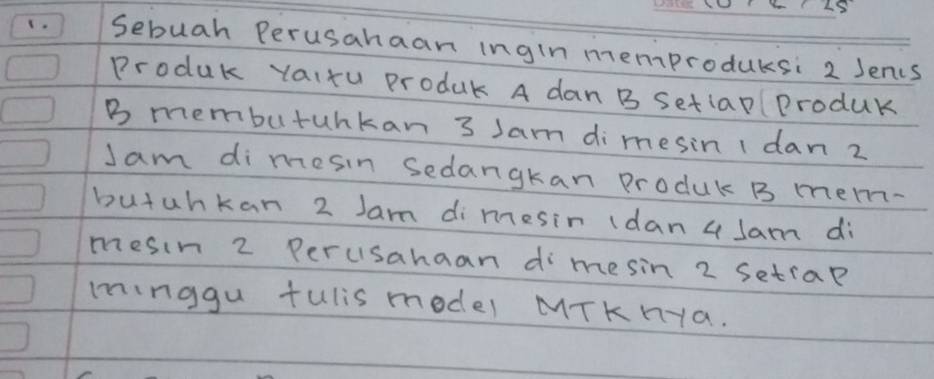 1. Sebuah Perusahaan ingin memproduksi 2 Jenis
Produk Yaitu Produk A dan B Setiap Produk
B membutuhkan 3 Jam di mesin 1 dan 2
Jam di mesin Sedangkan Produk B mem-
butuhkan 2 Jam di mesin 1 dan 4 Jam di
mesin 2 Perusahaan di mesin 2 Setiap
minggu tulis model MTK nya.